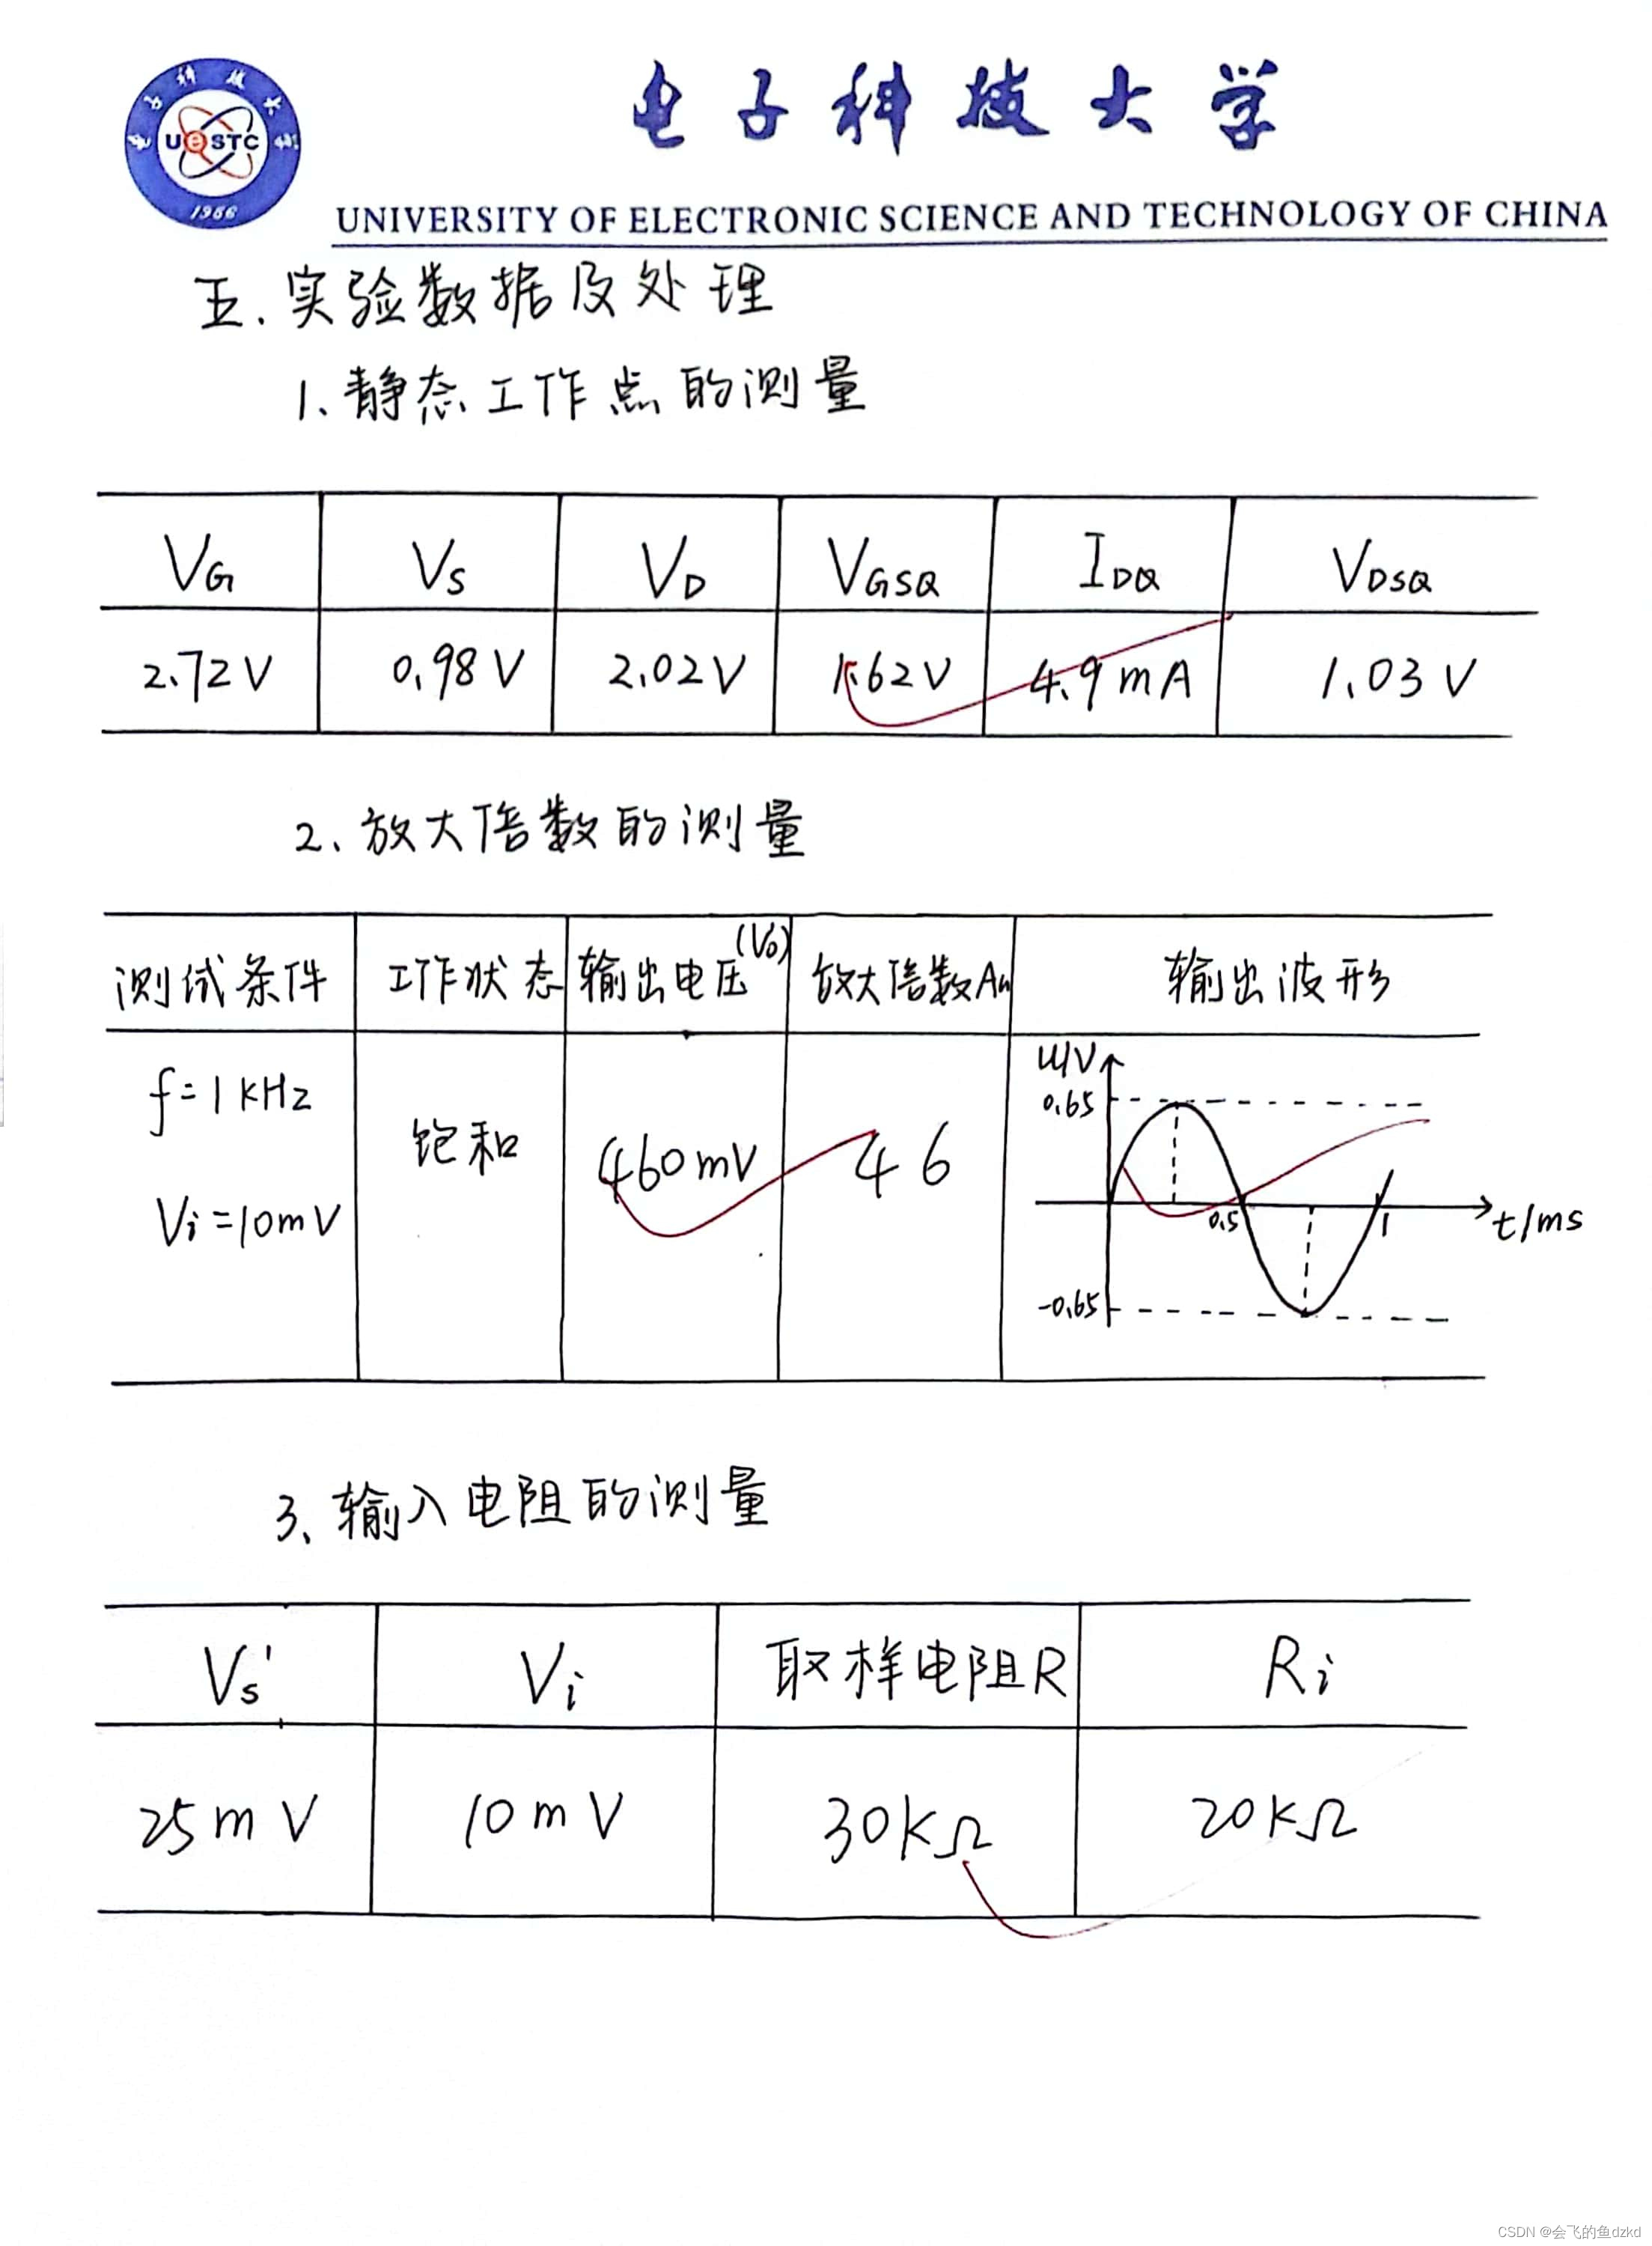 电子科技大学
UESTC
1956
UNIVERSITY OF ELECTRONIC SCIENCE AND TECHNOLOGY OF CHINA
五.实验数据及处理
1、静态工作点的测量
VG VS VD VGSQ IDQ VDSQ
2.72V 0.98V 2.02V 1.62V 4.9mA 1.03V
2、放大倍数的测量
测试条件 工作状态 输出电压(Vo) 放大倍数Au 输出波形
f=1kHz
Vi=10mV
饱和 460mV 46
u/V
0.65
0.5
1
t/ms
-0.65
3、输入电阻的测量
Vs' Vi 取样电阻R Ri
25mV 10mV 30kΩ 20kΩ
CSDN @会飞的鱼dzkd